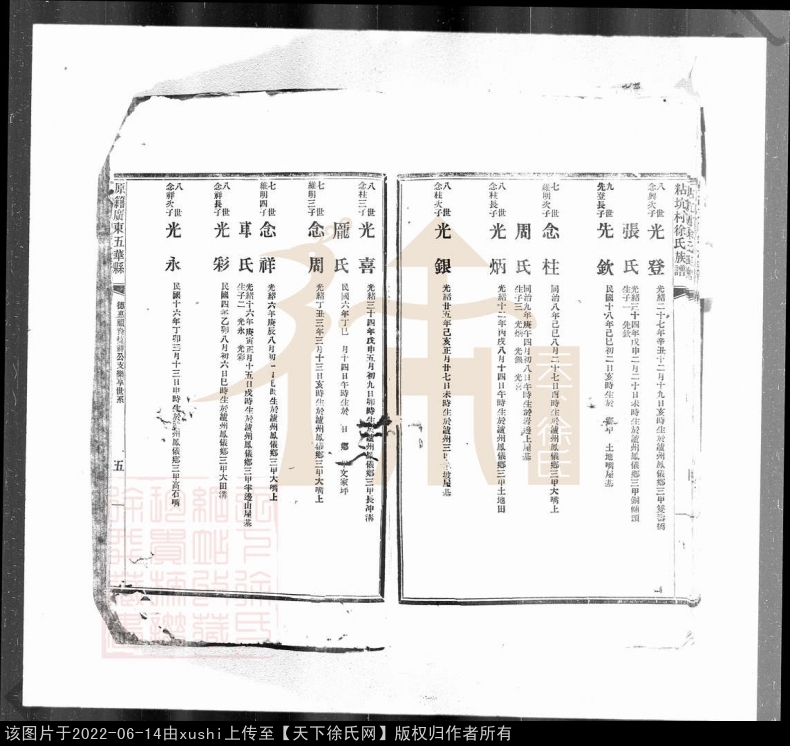 粘坑村徐氏族譜
八世 光登
念興次子
光緒二十七年辛丑十二月十九日亥時生於瀘州鳳儀鄉三甲雙壽橋
張氏
光緒三十四年戊申二月二十日未時生於瀘州鳳儀鄉三甲
生子一 先欽
九世 先欽
先登長子
民國十八年己巳初二日亥時生於 土地嘴屋基
七世 念柱
維明次子
同治八年己巳八月二十七日酉時生於瀘州鳳儀鄉三甲大嘴上
周氏
同治九年庚午四月初八日午時生於 邊上屋基
生子三 光炳 光銀 光喜
八世 光炳
念柱長子
光緒十二年丙戌八月十四日午時生於瀘州鳳儀鄉三甲土地田
八世 光銀
念柱次子
光緒廿五年己亥正月廿七日未時生於瀘州三甲 屋基
八世 光喜
念柱三子
光緒三十四年戊申五月初九日卯時生於瀘州鳳儀鄉三甲長冲溝
龐氏
民國六年丁巳 月十四日午時生於 文家坪
七世 念周
維明三子
光緒丁丑三年三月十三日亥時生於瀘州鳳儀鄉三甲大嘴上
七世 念祥
維明四子
光緒六年庚辰八月初 時生於瀘州鳳儀鄉三甲大嘴上
車氏
光緒十六年庚寅正月十五日戌時生於瀘州鳳儀鄉三甲半邊山屋基
生子二 光永 光彩
八世 光彩
念祥長子
民國四年乙卯八月初六日巳時生於瀘州鳳儀鄉三甲大田溝
八世 光永
念祥次子
民國十六年丁卯三月十三日申時生於瀘州鳳儀鄉三甲高石嘴
原籍廣東五華縣
五
天下徐氏
该图片于2022-06-14由xushi上传至【天下徐氏网】版权归作者所有